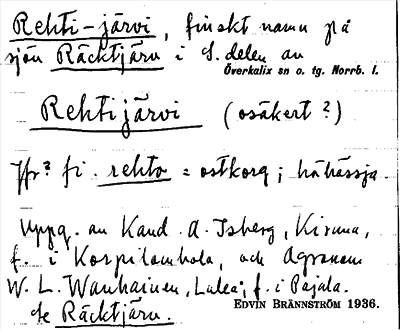 Rehti-järvi, finskt namn på
sjön Räcktjärv i S. delen av
Överkalix sn o. tg. Norrb. l.
Rehtijärvi (osäkert?)
Jfr? fi. rehto = ostkorg; hähässja.
Uppg. av Kand. A. Isberg, Kiruna,
f. i Korpilombolo, och Agronom
W. L. Wanhainen, Luleå; f. i Pajala.
EDVIN BRÄNNSTRÖM 1936.
se Räcktjärv.